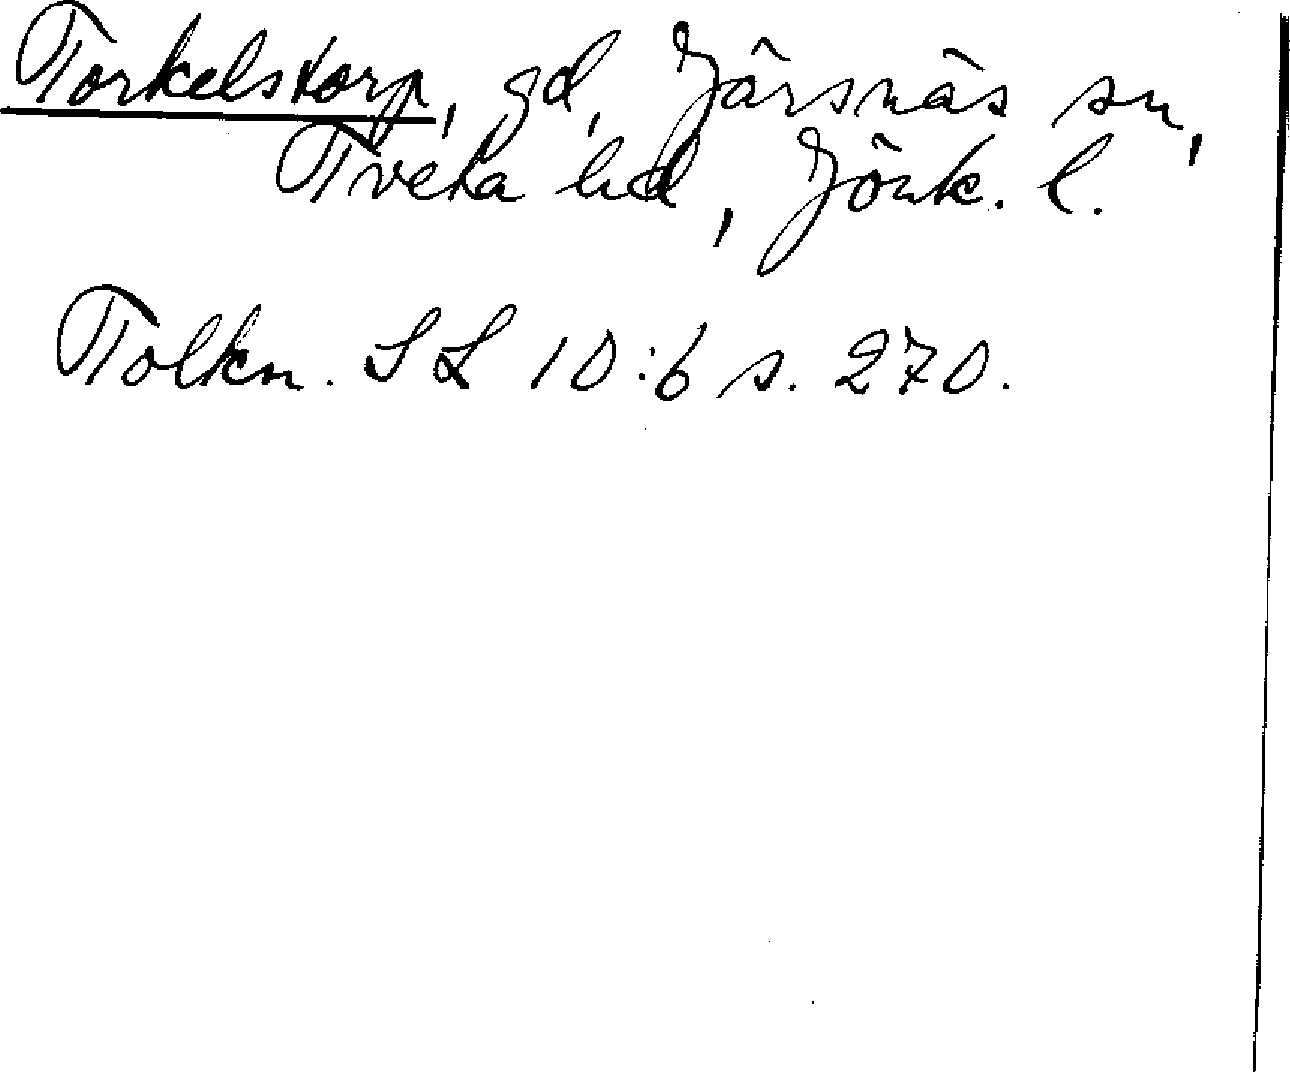 Torkelstorp, gd, Järsnäs sn,
Tveta hd, Jönk. l.
Tolkn. SL 10:6 s. 270.